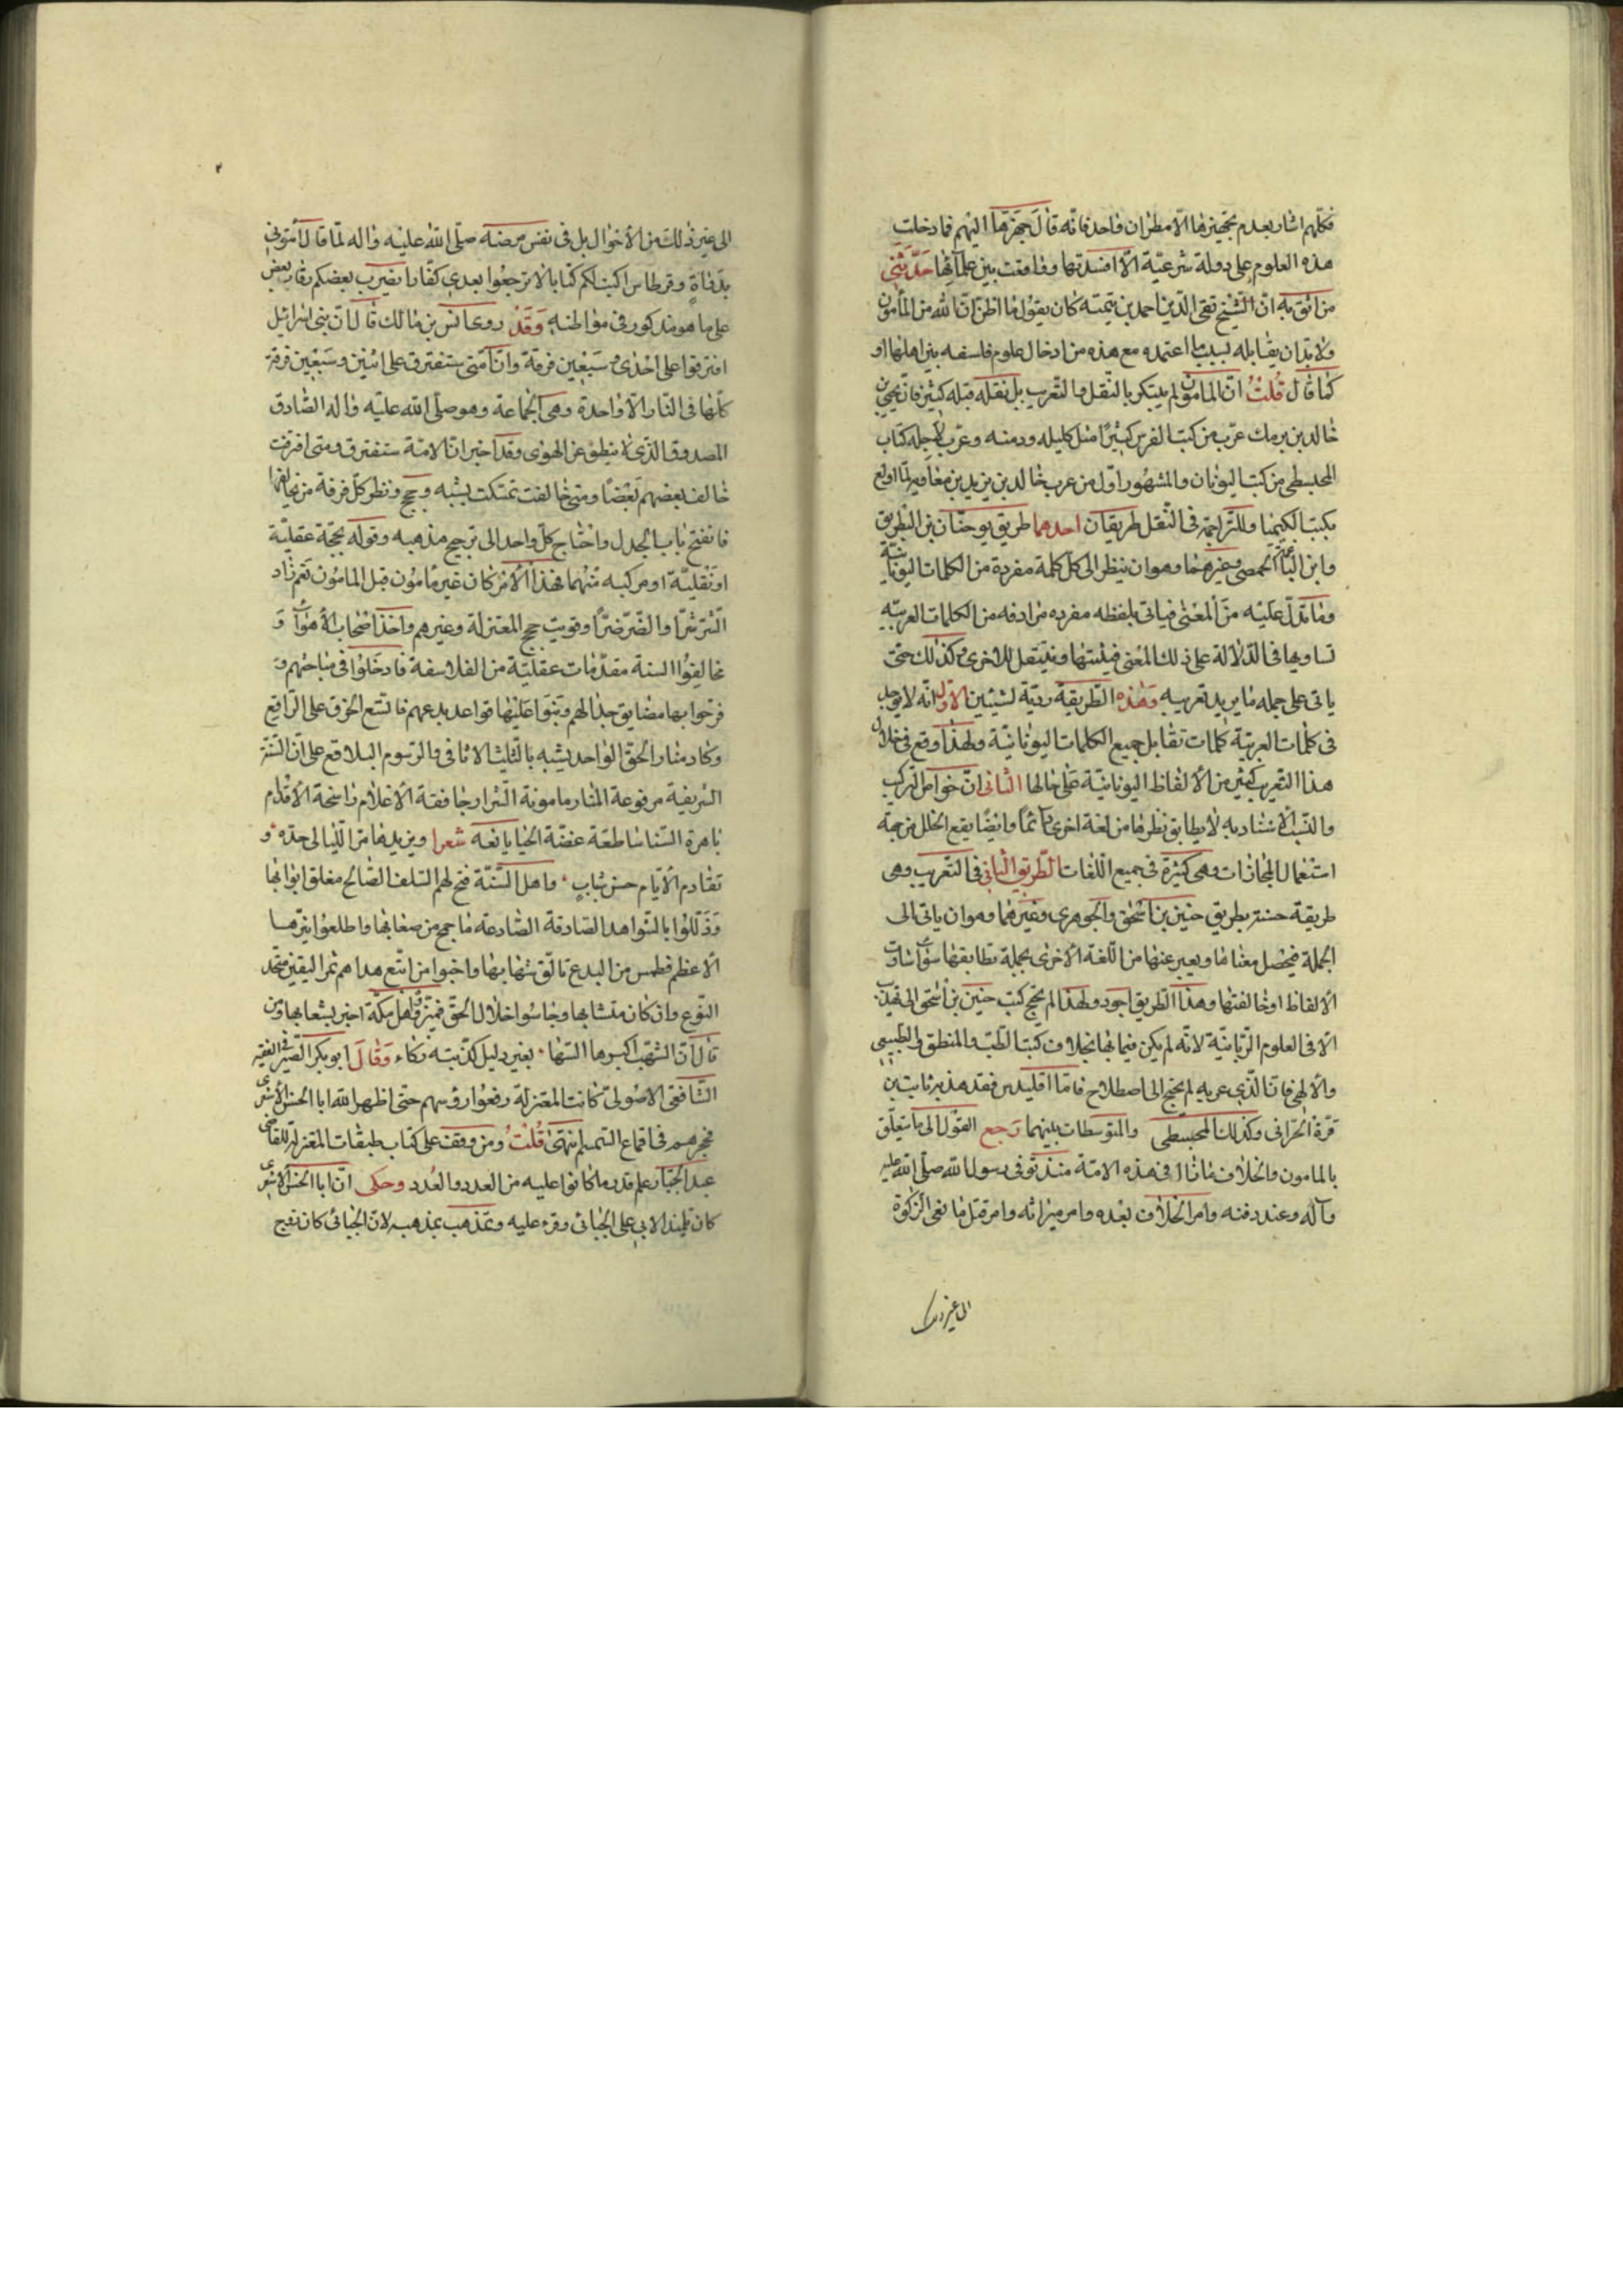 فكلّهم اشار بعدم تجهيزها الّا مطران واحد فانّه قال جهّزها اليهم فما دخلت
هذه العلوم على دولة شرعيّة الّا افسدتها ووقعت بين علمآئها حدّثنى
من اثق به انّ الشيخ تقى الدّين احمد بن تيميّه كان يقول ما اظنّ انّ الله من المأمون
ولابدّ ان يقابله بسبب ما اعتمده مع هذه من ادخال علوم فلسفه بين اهلها او
كما قال قلت انّ المامون لم يبتكر بالنّقل والتّعريب بل نقله قبله كثير فانّ يحيى بن
خالد بن برمك عرّب من كتب الفرس كثيرًا مثل كليله ودمنه وعرّب لاجله كتاب
المجسطى من كتب اليونان والمشهور اوّل من عرب خالد بن يزيد بن معاوية لمّا اولع
بكتب الكيميا وللتّراجمة فى النّقل طريقان احدهما طريق يوحنّا بن البطريق
وابن الناعمه الحمصى وغيرهما وهو ان ينظر الى كلّ كلمة مفردة من الكلمات اليونانيّة
وما تدلّ عليه من المعنى فياتى بلفظه مفرده مرادفه من الكلمات العربيّه
تساويها فى الدّلالة على ذلك المعنى فيثبتها وينتقل للاخرى وكذلك حتّى
ياتى على جمله ما يريد تعريبه وهذه الطّريقة رديّة لشيئين الاوّل انّه لا يوجد
فى كلمات العربيّة كلمات تقابل جميع الكلمات اليونانيّة ولهذا وقع فى خلال
هذا التّعريب كثير من الالفاظ اليونانيّة على حالها الثّانى انّ خواصّ التركيب
والنّسب الاسناديه لا يطابق نظيرها من لغة اخرى دآئمًا وايضًا يقع الخلل من جهة
استعمال المجازات وهى كثيرة فى جميع اللّغات الطّريق الثّانى فى التّعريب وهى
طريقة حسنة بطريق حنين بن اسحق والجوهرى وغيرهما وهو ان ياتى الى
الجملة فيحصل معناها ويعبر عنها من اللّغة الاخرى بجملة تطابقها سوآء ساوت
الالفاظ او خالفتها وهذا الطّريق اجود ولهذا لم يحتج كتب حنين بن اسحق الى تهذيب
الّا فى العلوم الرّيانيّة لانّه لم يكن قيما بها بخلاف كتب الطّبّ والمنطق والطبيعى
والالهى فانّ الّذى عربه لم يحتج الى اصطلاح فامّا اقليدس فقد هذبه ثابت بن
قرّة الحرّانى وكذلك المجسطى والمتوسطات بينهما رجع القول الى ما يتعلّق
بالمامون والخلاف ما زال فى هذه الامّة منذ توفى رسول الله صلّى الله عليه
وآله وعند دفنه وامر الخلاف بعده وامر ميراثه وامر قتل مانعى الزّكوة
الى غير ذلك
الى غير ذلك من الاحوال بل فى نفس مرضه صلّى الله عليه واله لمّا قال أتونى
بدواة وقرطاس اكتب لكم كتابا لا ترجعوا بعدى كفّارا يضرب بعضكم رقاب بعض
على ما هو مذكور فى مواطنه وقد روى انس بن مالك قال انّ بنى اسرائيل
افترقوا على احدى وسبعين فرقة وانّ امّتى ستفترق على اثنين وسبعين فرقة
كلّها فى النّار الّا واحدة وهى الجماعة وهو صلّى الله عليه واله الصّادق
المصدوق الّذى لا ينطق عن الهوى وقد اخبر انّ الامّة ستفترق ومتى افترقت
خالف بعضهم بعضًا ومتى خالفت تمسّكت بشبه وحجج وناظر كلّ فرقة من يخالفها
فانفتح باب الجدل واحتاج كلّ واحد الى ترجيح مذهبه وقوله بحجّة عقليّة
او نقليّة او مركبه منهما فهذا الامر كان غير مامون قبل المامون نعم زاد
الشّر شرّا والضّرّ ضرّا وقويت حجج المعتزلة وغيرهم واخذ اصحاب الاهوآء و
مخالفوا السنة مقدّمات عقليّة من الفلاسفة فادخلوا فى مباحثهم و
فرجوا بها مضايق جدالهم وبنوا عليها قواعد بدعهم فاتّسع الخرق على الرّاقع
وكاد منار الحقّ الواحد يشبه بالثّلث الاثافى والرّسوم البلاقع على انّ السّنّة
الشريفة مرفوعة المنار مامونة الشرار خافقة الاعلام راسخة الاقدام
باهرة السّنا ساطعة غضّة الحيا يانعة شعرا ويزيدها مرّ اللّيالى جدّه و
تقادم الايّام حسن شباب واهل السّنّة فتح لهم السّلف الصّالح مغلق ابوابها
وذلّلوا بالشّواهد الصّادقة الصّادعة ما جمح من صعابها واطلعوا نيّرها
الاعظم فطمس من البدع تالّق شهابها واجنوا من اتّبع هداهم ثمر اليقين متّحد
النّوع وان كان متشابها وجاسوا خلال الحقّ فميّزوا اهل مكّة اخبر بشعابها ومن
قال انّ الشّهب اكبرها السّها بغير دليل كذّبته ذكاء وقال ابو بكر الصّيرفى الفقيه
الشّافعى الاصولى كانت المعتزلة رفعوا رؤسهم حتى اظهر الله ابا الحسن الاشعرى
فحجرهم فى اقماع السّمسم انتهى قلت ومن وقف على كتاب طبقات المعتزلة للقاضى
عبد الجبّار علم قدر ما كانوا عليه من العدد والعُدد وحكى انّ ابا الحسن الاشعرى
كان تلميذ الابى على الجبائى وقرء عليه وتمذهب بمذهبه لانّ الجبائى كان تزوج